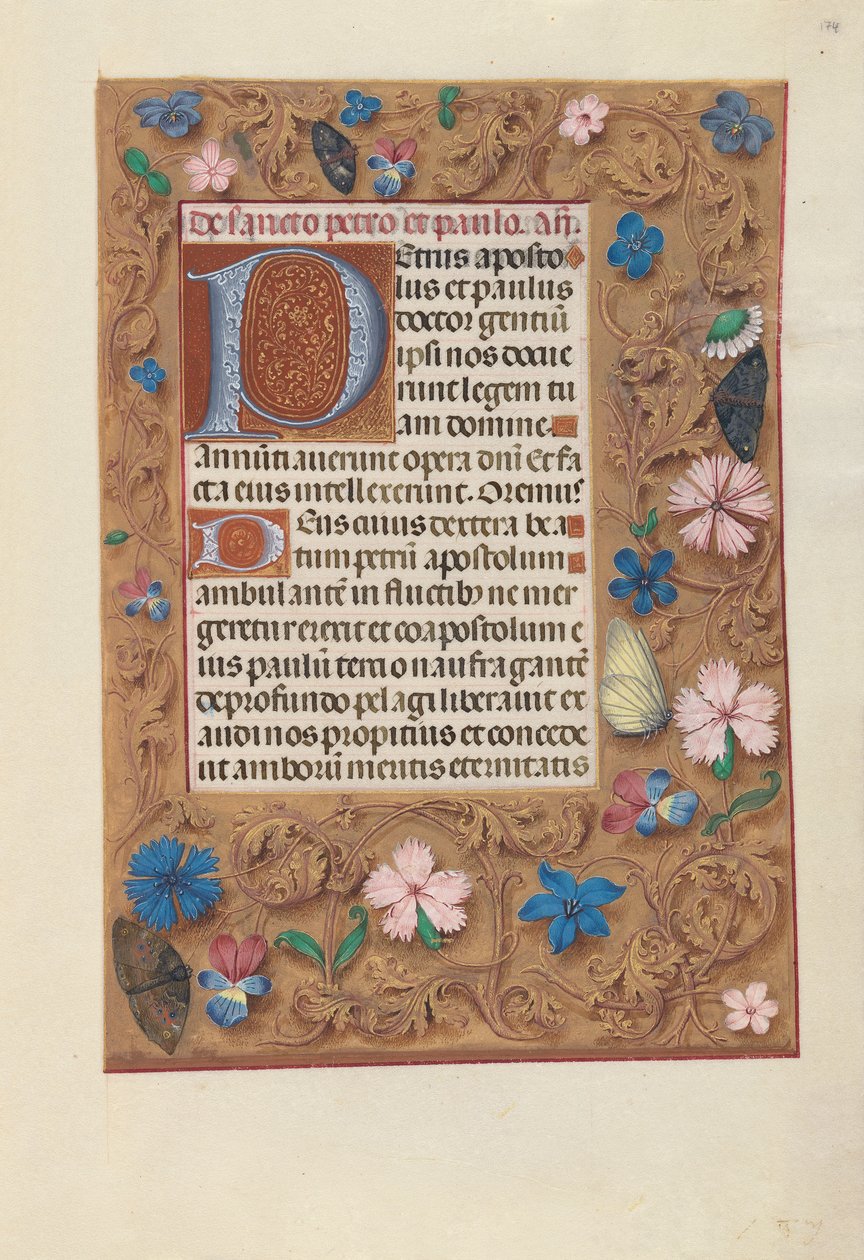 174
De sancto petro et paulo. An̄.
PEtrus aposto
lus et paulus
doctor gentiū
ipsi nos docue
runt legem tu
am domine.
Annūtiauerunt opera dn̄i Et fa
cta eius intellexerunt. Oremus
DEus cuius dextera bea
tum petrū apostolum
ambulantē in fluctibꝫ ne mer
geretur erexit et coapostolum e
ius paulū tercio naufragantē
de profundo pelagi liberauit ex
audi nos propitius et concede
ut amborū meritis eternitatis